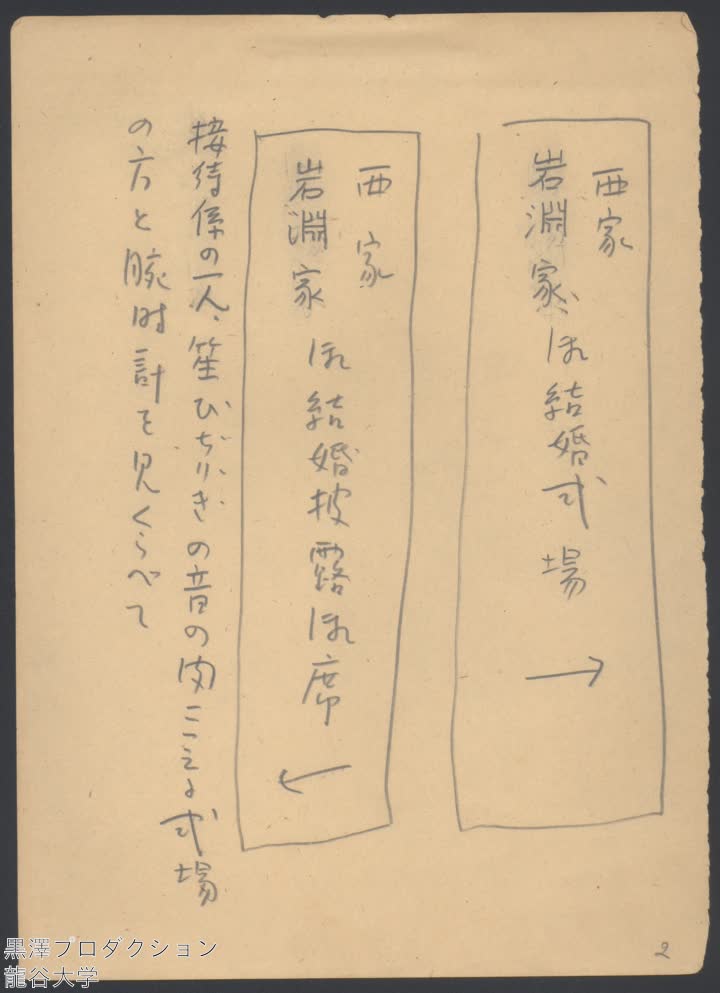 西家
岩淵家 御結婚式場
→
西家
岩淵家 御結婚披露御席
←
接待係の一人、笙ひぢりぎの音の聞こえる式場
の方と腕時計を見くらべて
2
黒澤プロダクション
龍谷大学